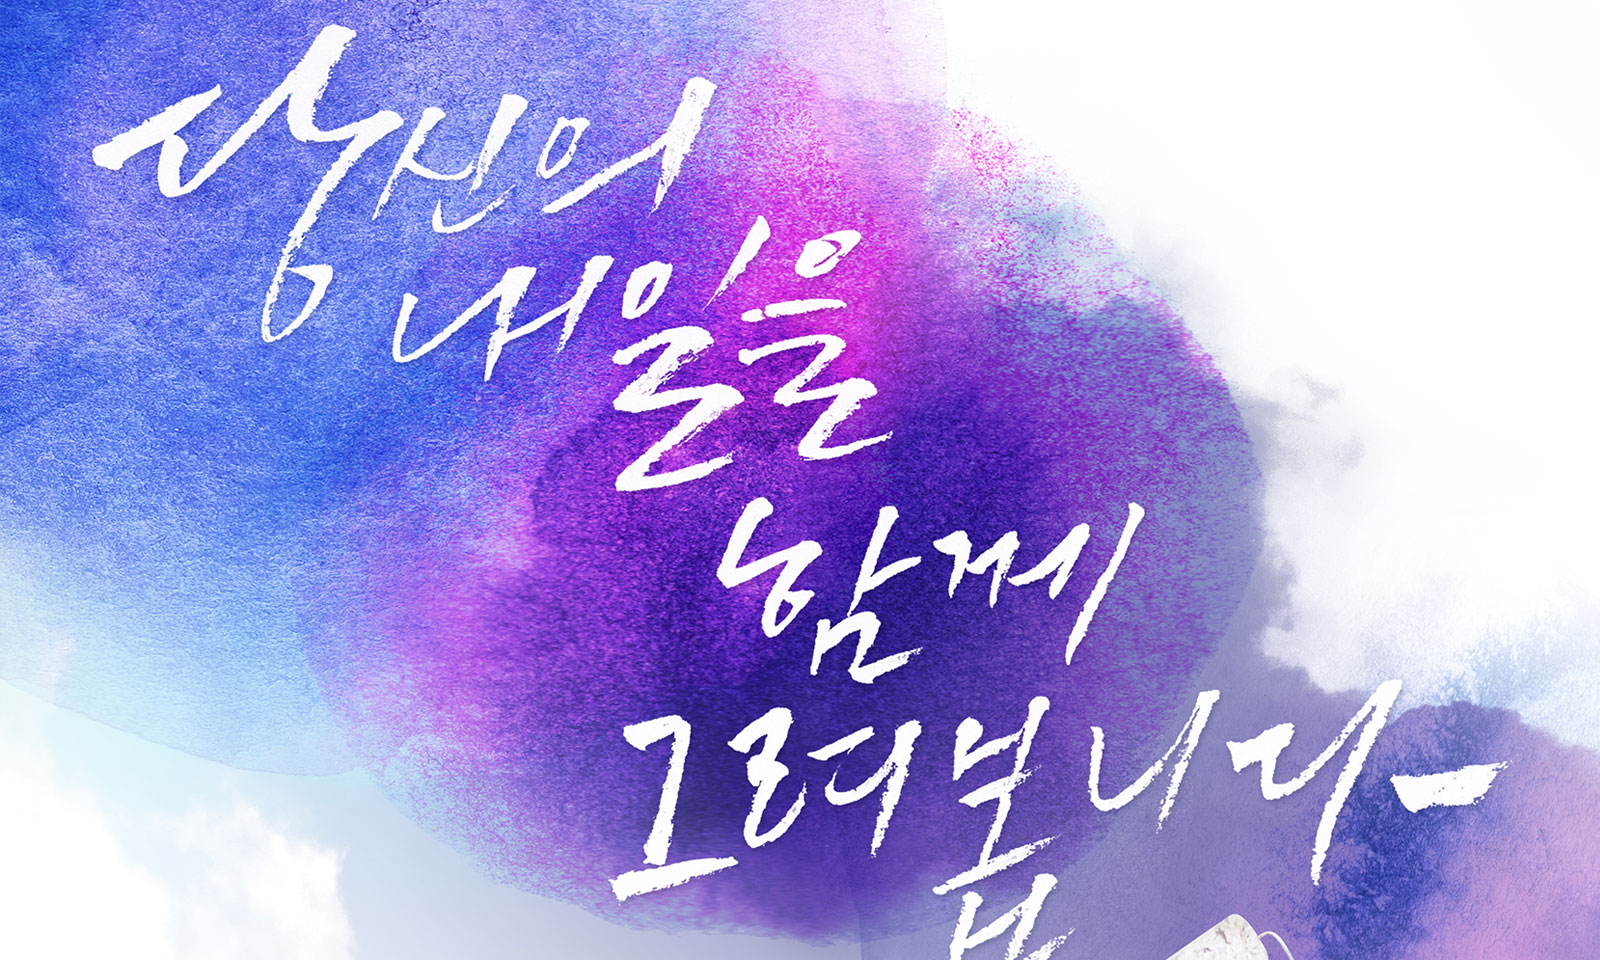 당신의
내일을
함께
그려봅니다